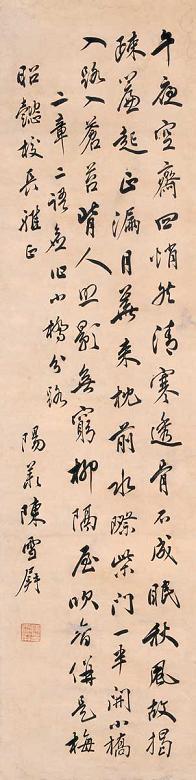 午夜空齋四悄然清寒透骨不成眠秋風故揭
疎簾起正漏月華來枕前水際柴門一半開小橋
入路入蒼苔背人照影無窮柳隔屋吹香併是梅
二章二語 小橋分路
昭懿校長雅正 陽羨陳雪屏